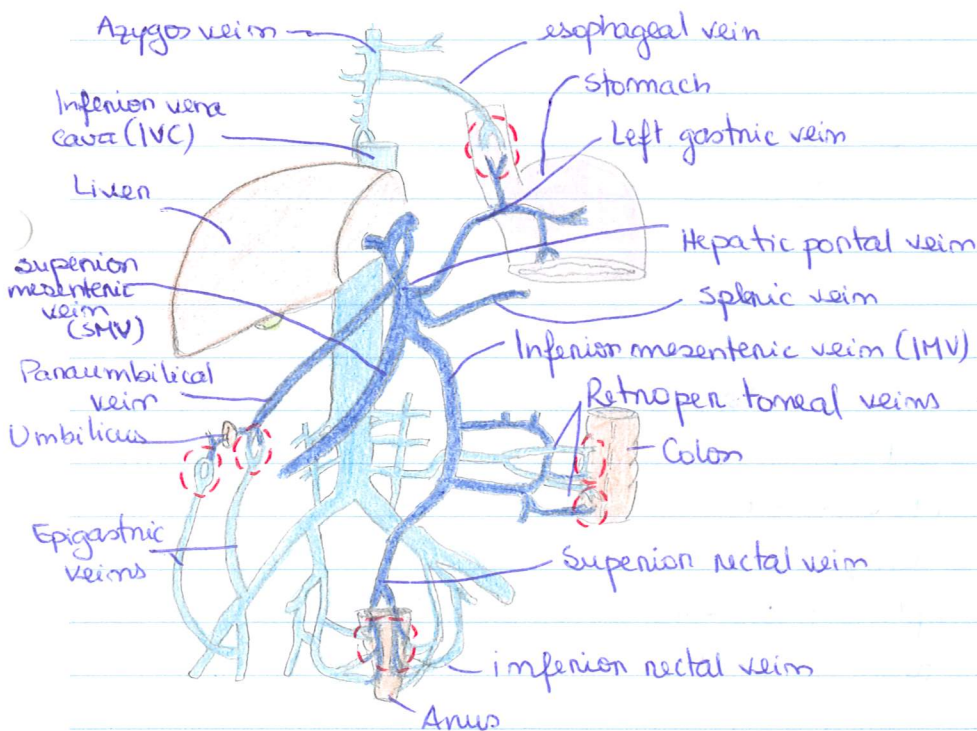 Azygos vein
esophageal vein
stomach
Inferior vena
cava (IVC)
Left gastric vein
Liver
Hepatic portal vein
superior
mesenteric
vein
(SMV)
splenic vein
Inferior mesenteric vein (IMV)
Paraumbilical
vein
Retroperitoneal veins
Umbilicus
Colon
Epigastric
veins
Superior rectal vein
inferior rectal vein
Anus